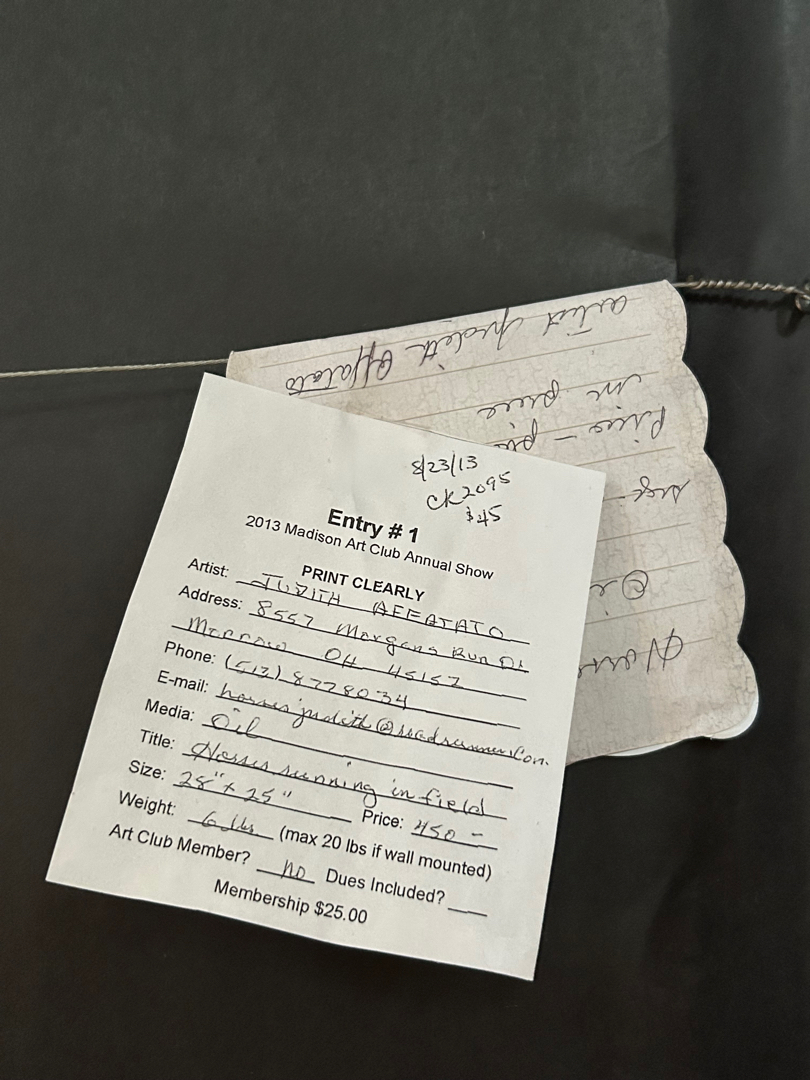 8/23/13
CK2095
$45
Entry # 1
2013 Madison Art Club Annual Show
PRINT CLEARLY
Artist: JUDITH AFFATATO
Address: 8557 Morgans Run Dr
Morrow OH 45152
Phone: (513) 8778034
E-mail: horsesjudith@roadrunner.com
Media: Oil
Title: Horses running in field
Size: 28" x 25" Price: 450-
Weight: 6 lbs (max 20 lbs if wall mounted)
Art Club Member? no Dues Included?
Membership $25.00
Artist Judith Affatato